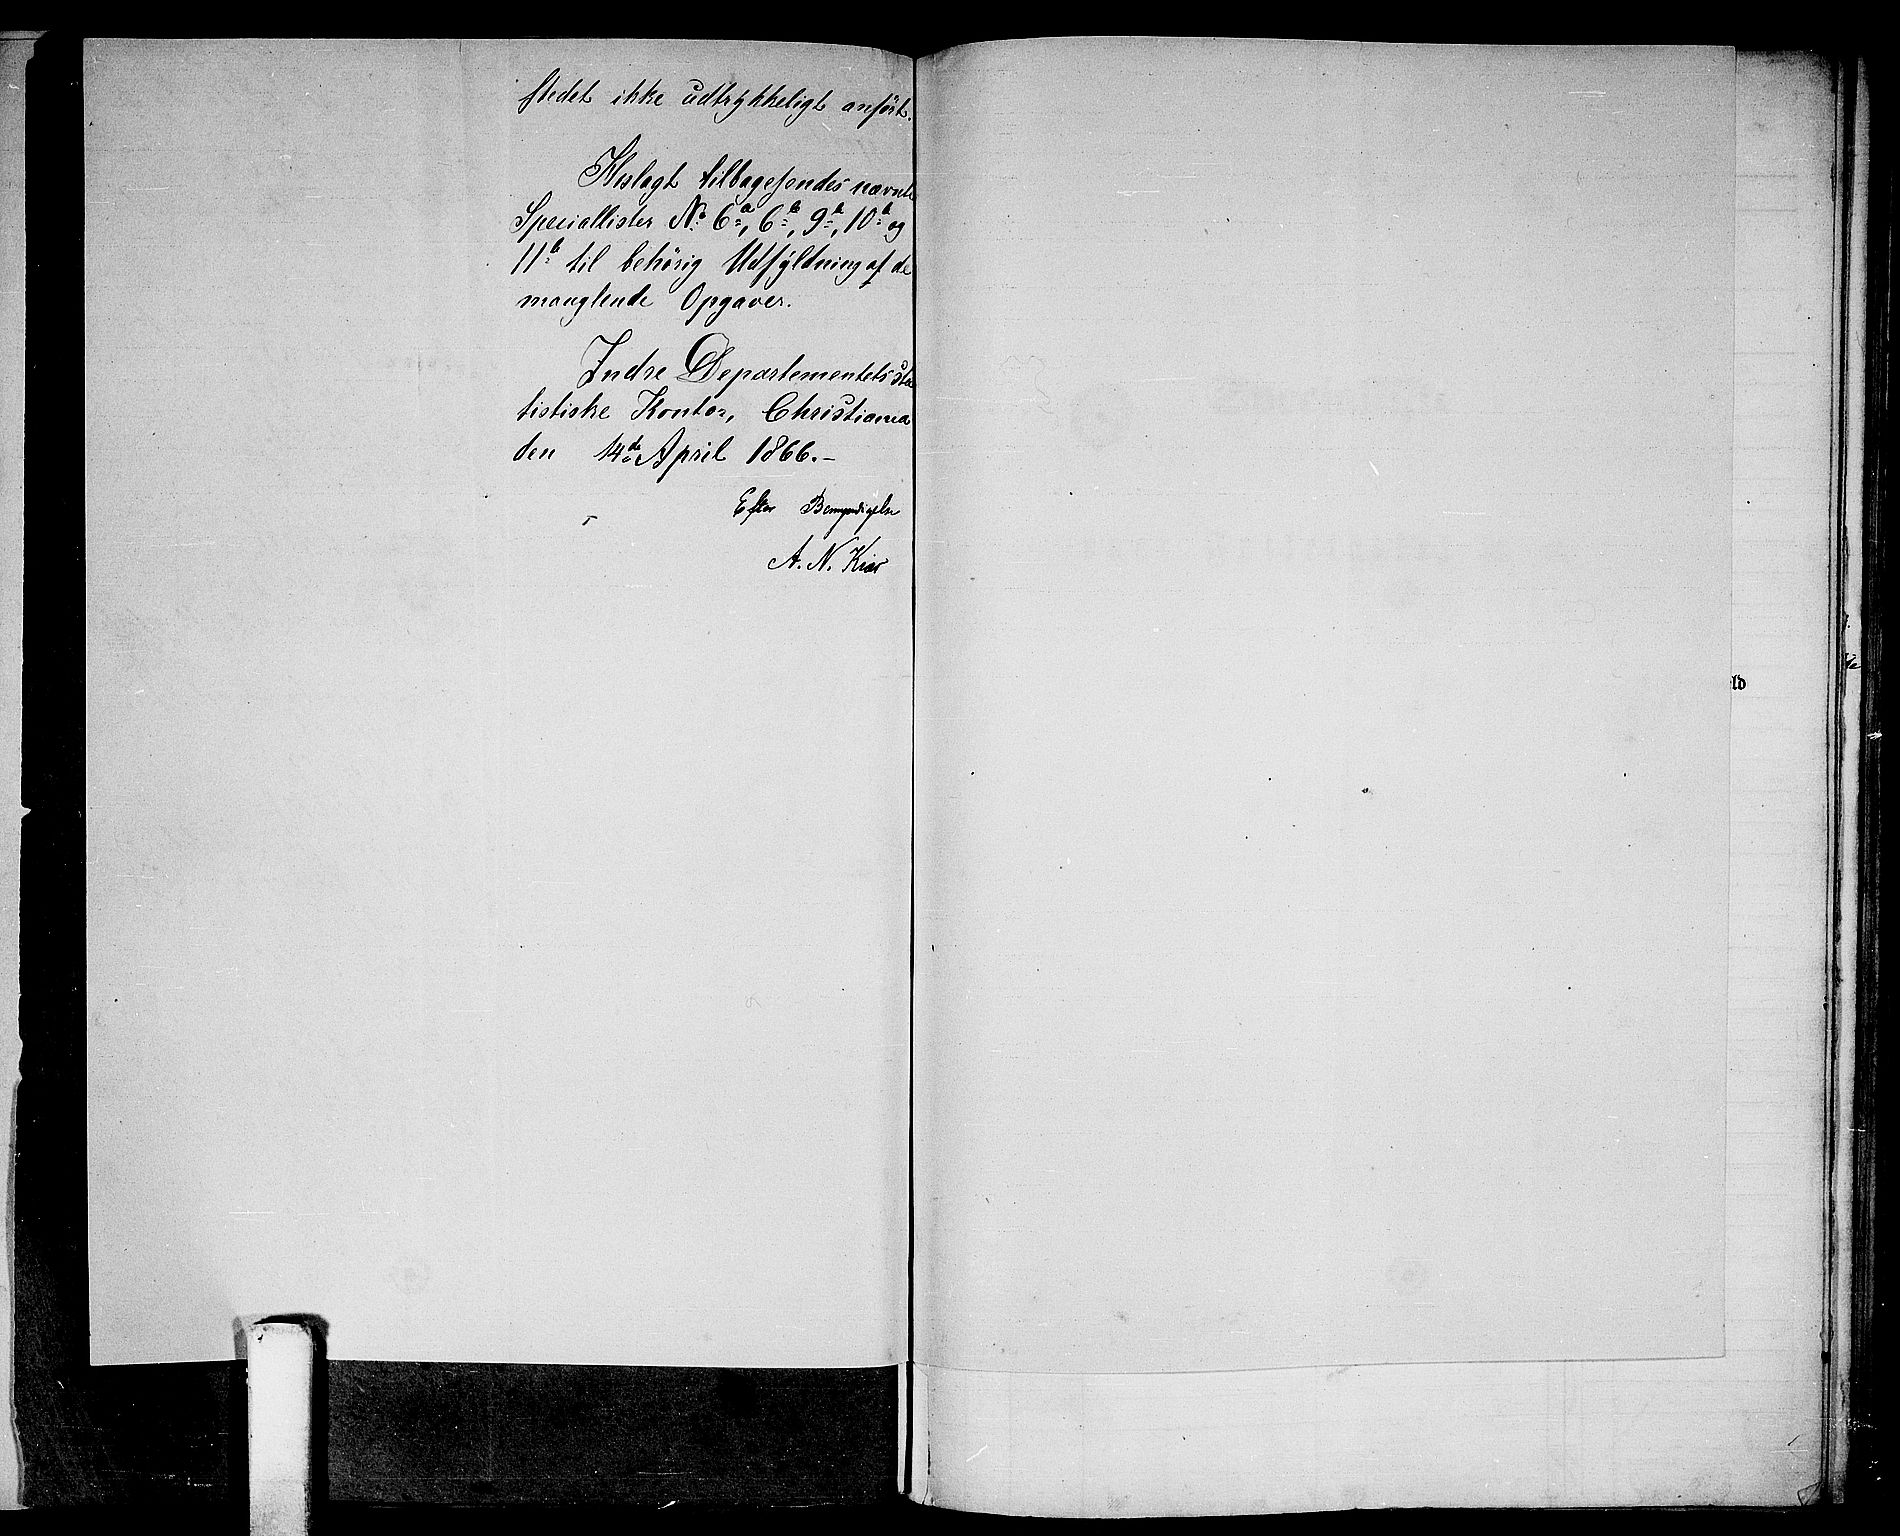 stedet ikke udtrykkeligt anført.
Hoslagt tilbagesendes nævnte
Speciallister No 6a, 6b, 9b, 10b og
11b til behørig Udfyldning af de
manglende Opgaver.
Indre Departementets sta
tistiske Kontor, Christiania
den 14de April 1866.-
Efter Bemyndigelse
A. N. Kiær
ld